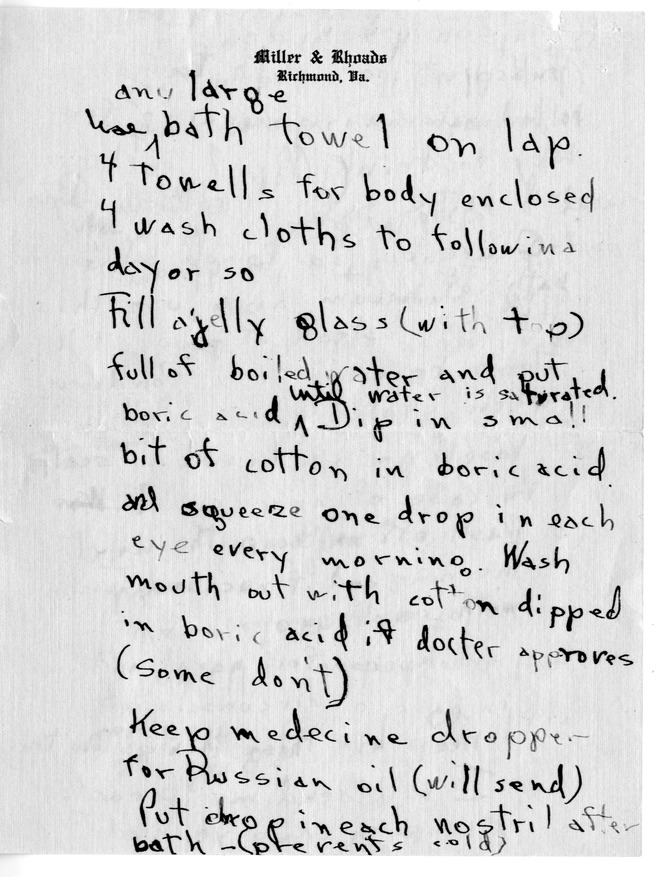 Miller & Rhoads
Richmond, Va.
any large
Use ^ bath towel on lap.
4 Towells for body enclosed
4 wash cloths to following
day or so
Fill a jelly glass (with top)
full of boiled water and put
until water is saturated.
boric acid ^ Dip in small
bit of cotton in boric acid.
and squeeze one drop in each
eye every morning. Wash
mouth out with cotton dipped
in boric acid if docter approves
(some don't)
Keep medecine dropper
for Russian oil (will send)
Put drop in each nostril after
bath - (prevents cold)